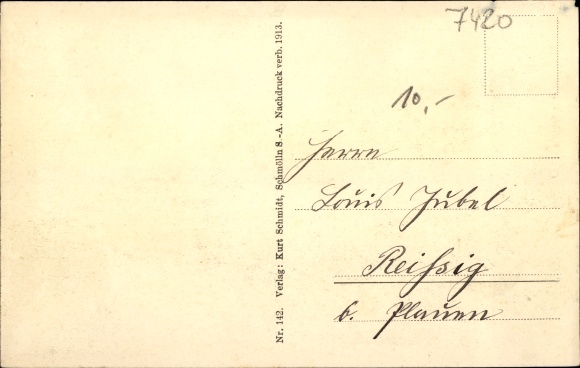 7420
10,-
Herrn
Louis Jubel
Reißsig
b. Plauen
Nr. 142. Verlag: Kurt Schmidt, Schmölln S.-A. Nachdruck verb. 1913.